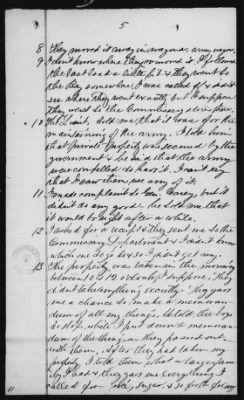 5
8 They moved it away in wagons, army wagons
9 I don't know where they moved it.
the last load on it & they went to
the Bay somewhere. I was called off & didn't
see where they went exactly but I suppose
they went to the Commissary
10 told me that it was for the
maintaining of the army. I told him
that private property was secured by the
government & he said that the army
was compelled to have it. I can't say
that I saw them use any of it.
11 I made complaint to Gen. but it
didn't do any good. He told me that
it would be right after a while.
12 I asked for a receipt & they sent me to the
Commissary Department & I didn't know
which one to go to so I didn't get any.
13 The property was taken in the morning
between & 10 o'clock I suppose. They
didn't take anything secretly. They gave
me a chance to make a memoran-
dum of all my things. I told the boy
to stop while I put down a memoran-
dum of the things as they passed out
with them. After they had taken my
property I told them what a large fam-
ily I had & they gave me everything I
called for. sugar & so forth for my